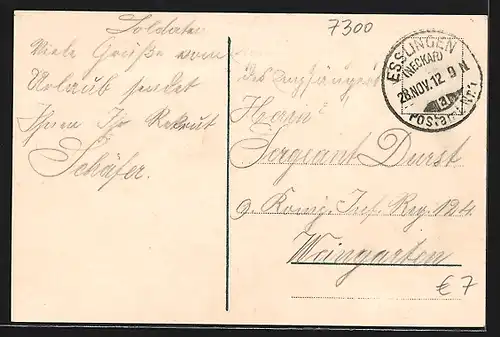 Soldaten
7300
Viele Grüße vom
Urlaub sendet
Ihnen Ihr Rekrut
Schäfer.
ESSLINGEN
(NECKAR)
28.NOV.12. 9 N
Postamt Nr 1
des Empfängers
Herrn
Sergeant Durst
9. Königs. Inf. Reg. 124.
Weingarten
€ 7